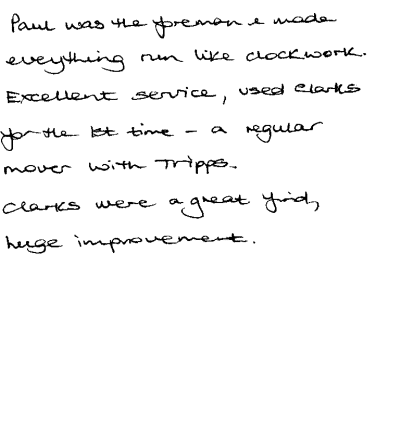 Paul was the foreman & made
everything run like clockwork.
Excellent service, used Clarks
for the 1st time - a regular
mover with Tripps.
Clarks were a great find,
huge improvement.